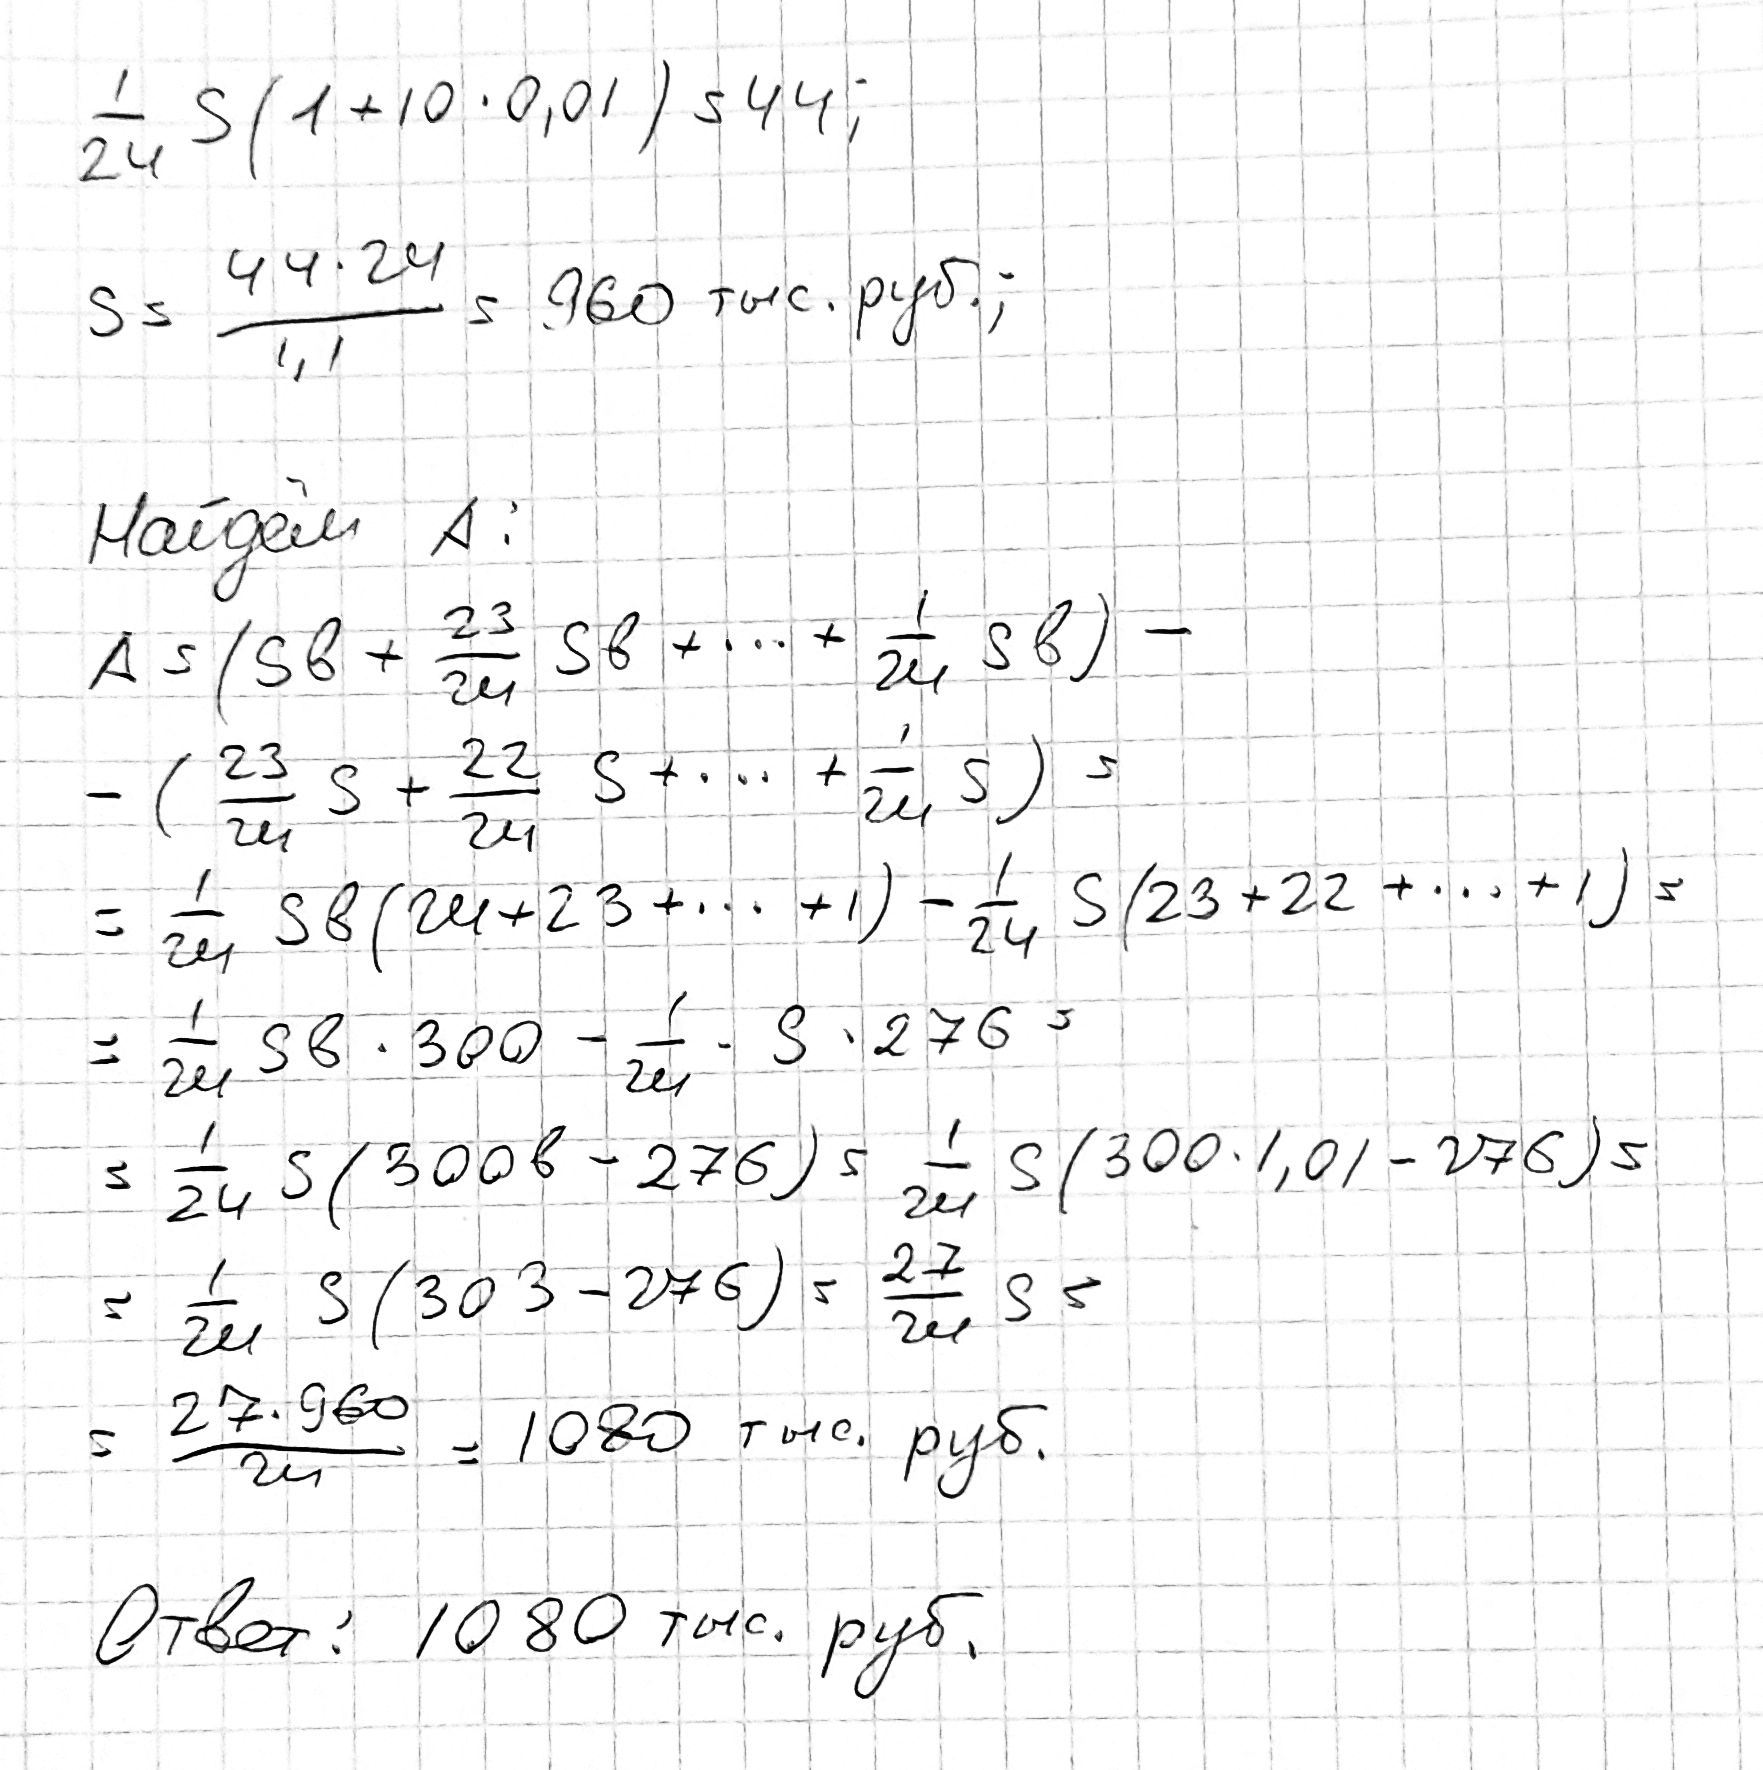 1/24 S(1+10·0,01)=44;
S= 44·24/1,1 = 960 тыс. руб.;
Найдём A:
A=(Sb + 23/24 Sb +...+ 1/24 Sb) –
–(23/24 S + 22/24 S +...+ 1/24 S) =
= 1/24 Sb(24+23+...+1) – 1/24 S(23+22+...+1) =
= 1/24 Sb·300 – 1/24 · S·276 =
= 1/24 S(300b – 276) = 1/24 S(300·1,01 – 276) =
= 1/24 S(303 – 276) = 27/24 S =
= 27·960/24 = 1080 тыс. руб.
Ответ: 1080 тыс. руб.